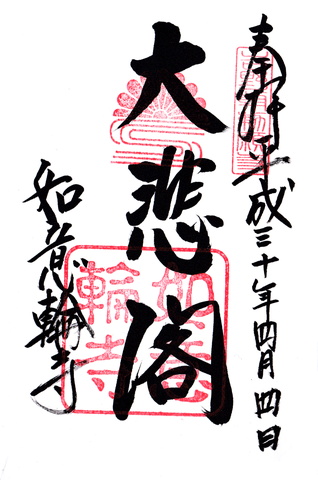 奉拝 平成三十年四月四日
大悲閣
如意輪寺
如意輪寺